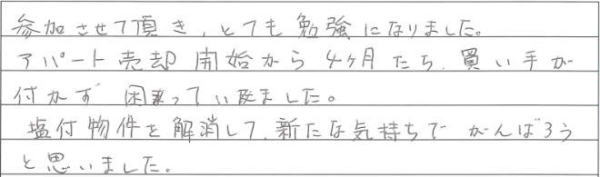 参加させて頂き、とても勉強になりました。
アパート売却開始から4ヶ月たち、買い手が
付かず困っていました。
塩付物件を解消して、新たな気持ちでがんばろう
と思いました。